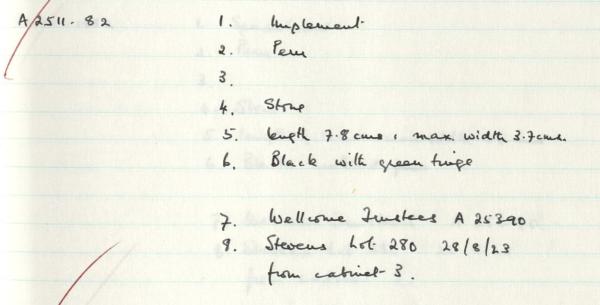 A2511.82 1. Implement
2. Peru
3.
4. Stone
5. length 7.8cms, max width 3.7cms.
6. Black with green tinge
7. Wellcome Trustees A 25390
8. Stevens Lot 280 28/8/23
from cabinet 3.